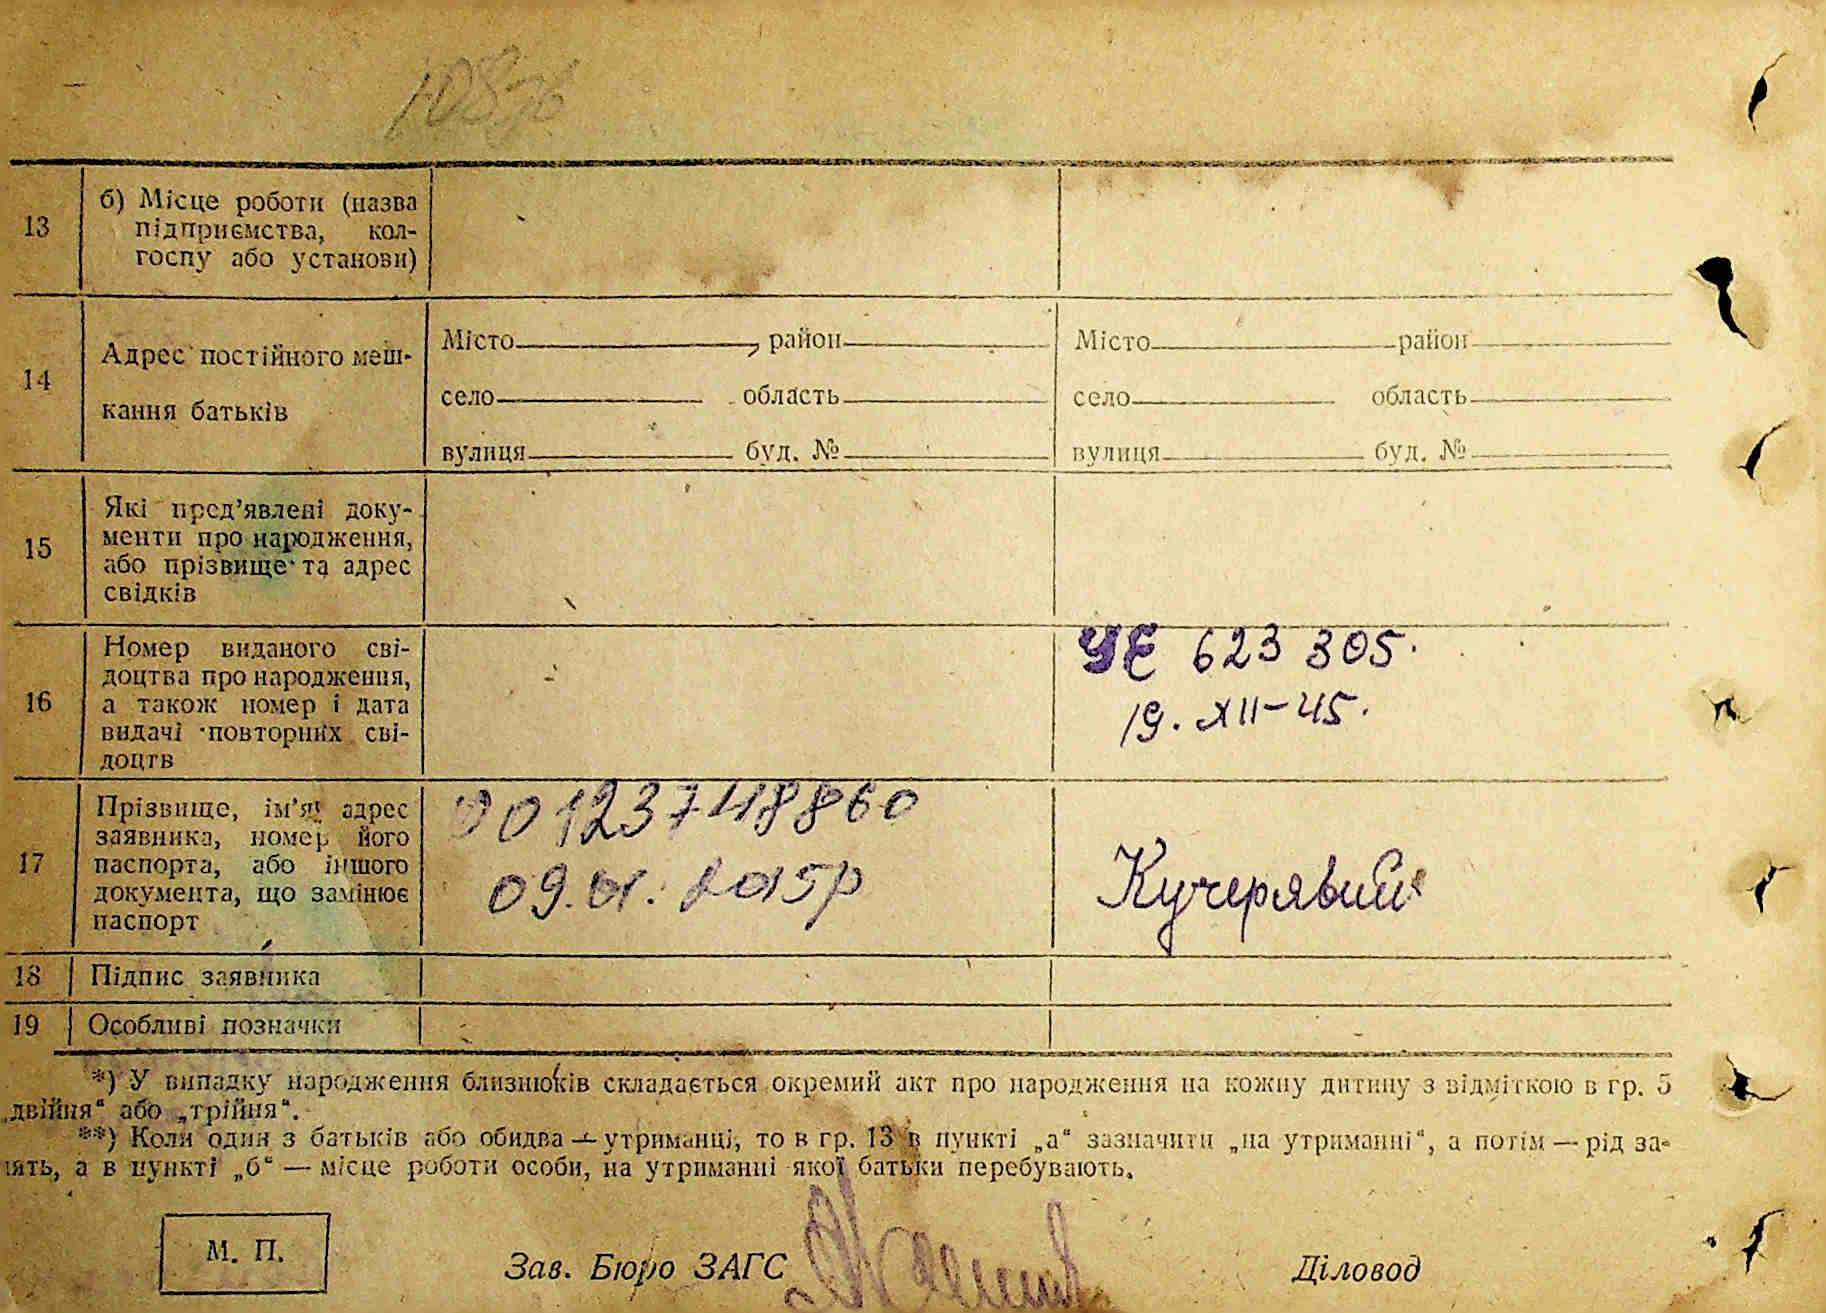 13
б) Місце роботи (назва
підприємства, кол-
госпу або установи)
14
Адрес постійного меш-
кання батьків
Місто , район
село область
вулиця буд. №
Місто район
село область
вулиця буд. №
15
Які пред’явлені доку-
менти про народження,
або прізвище та адрес
свідків
16
Номер виданого сві-
доцтва про народження,
а також номер і дата
видачі повторних сві-
доцтв
УЕ 623 305.
19. XII-45.
17
Прізвище, ім’я, адрес
заявника, номер його
паспорта, або іншого
документа, що замінює
паспорт
00123748860
09.01.2015р
Кучерявий
18
Підпис заявника
19
Особливі позначки
*) У випадку народження близнюків складається окремий акт про народження на кожну дитину з відміткою в гр. 5
„двійня“ або „трійня“.
**) Коли один з батьків або обидва — утриманці, то в гр. 13 в пункті „а“ зазначити „на утриманні“, а потім — рід за-
нять, а в пункті „б“ — місце роботи особи, на утриманні якої батьки перебувають.
М. П.
Зав. Бюро ЗАГС
Діловод